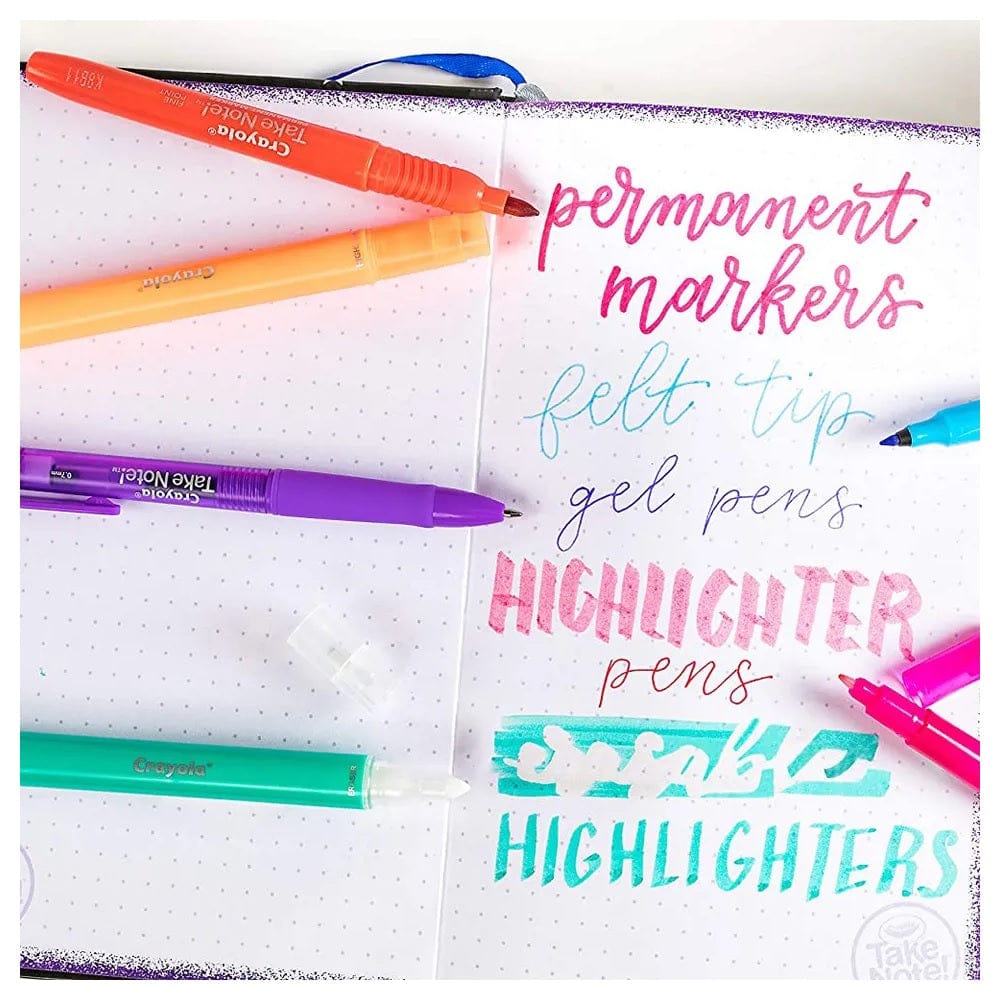 K8611
FINE
POINT
Crayola®
Take Note!™
permanent
markers
HIGH
Crayola®
felt tip
Crayola®
Take Note!™
0.7mm
gel pens
HIGHLIGHTER
pens
erasable
Crayola®
ERASER
HIGHLIGHTERS
Take
Note!